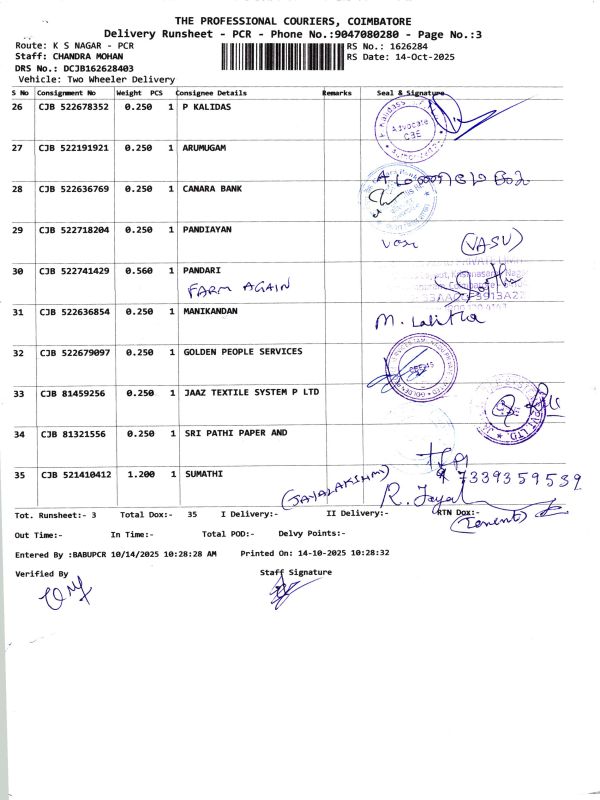 THE PROFESSIONAL COURIERS, COIMBATORE
Delivery Runsheet - PCR - Phone No.:9047080280 - Page No.:3
Route: K S NAGAR - PCR RS No.: 1626284
Staff: CHANDRA MOHAN RS Date: 14-Oct-2025
DRS No.: DCJB162628403
Vehicle: Two Wheeler Delivery
S No Consignment No Weight PCS Consignee Details Remarks Seal & Signature
26 CJB 522678352 0.250 1 P KALIDAS
Advocate
CBE
27 CJB 522191921 0.250 1 ARUMUGAM
28 CJB 522636769 0.250 1 CANARA BANK
29 CJB 522718204 0.250 1 PANDIAYAN
vasu (VASU)
30 CJB 522741429 0.560 1 PANDARI
FARM AGAIN
31 CJB 522636854 0.250 1 MANIKANDAN
M. Lalitha
32 CJB 522679097 0.250 1 GOLDEN PEOPLE SERVICES
33 CJB 81459256 0.250 1 JAAZ TEXTILE SYSTEM P LTD
34 CJB 81321556 0.250 1 SRI PATHI PAPER AND
35 CJB 521410412 1.200 1 SUMATHI
7339359539
(JAYALAKSHMI) R. Jayal
Tot. Runsheet:- 3 Total Dox:- 35 I Delivery:- II Delivery:- RTN Dox:-
(Tenent)
Out Time:- In Time:- Total POD:- Delvy Points:-
Entered By :BABUPCR 10/14/2025 10:28:28 AM Printed On: 14-10-2025 10:28:32
Verified By Staff Signature